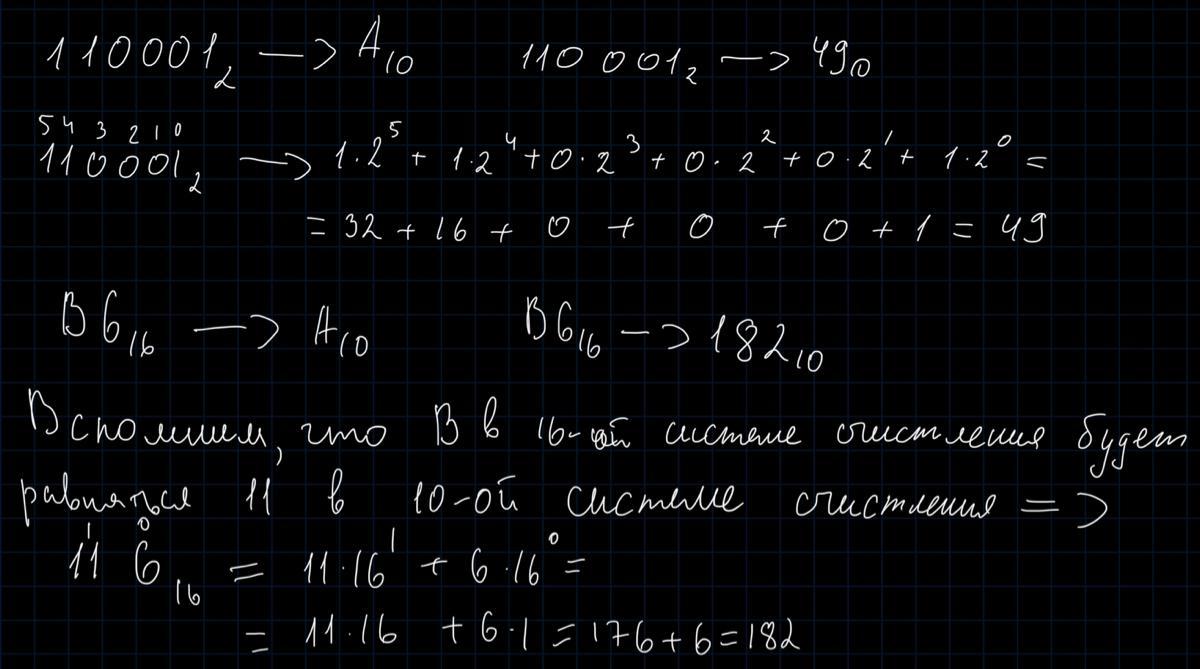 110001₂ —> A₁₀ 110001₂ —> 49₁₀
5 4 3 2 1 0
110001₂ —> 1·2⁵ + 1·2⁴ + 0·2³ + 0·2² + 0·2¹ + 1·2⁰ =
= 32 + 16 + 0 + 0 + 0 + 1 = 49
B6₁₆ —> A₁₀ B6₁₆ —> 182₁₀
Вспомним, что B в 16-ой системе счистления будет
равняться 11 в 10-ой системе счистления =>
1 0
11 6₁₆ = 11·16¹ + 6·16⁰ =
= 11·16 + 6·1 = 176 + 6 = 182